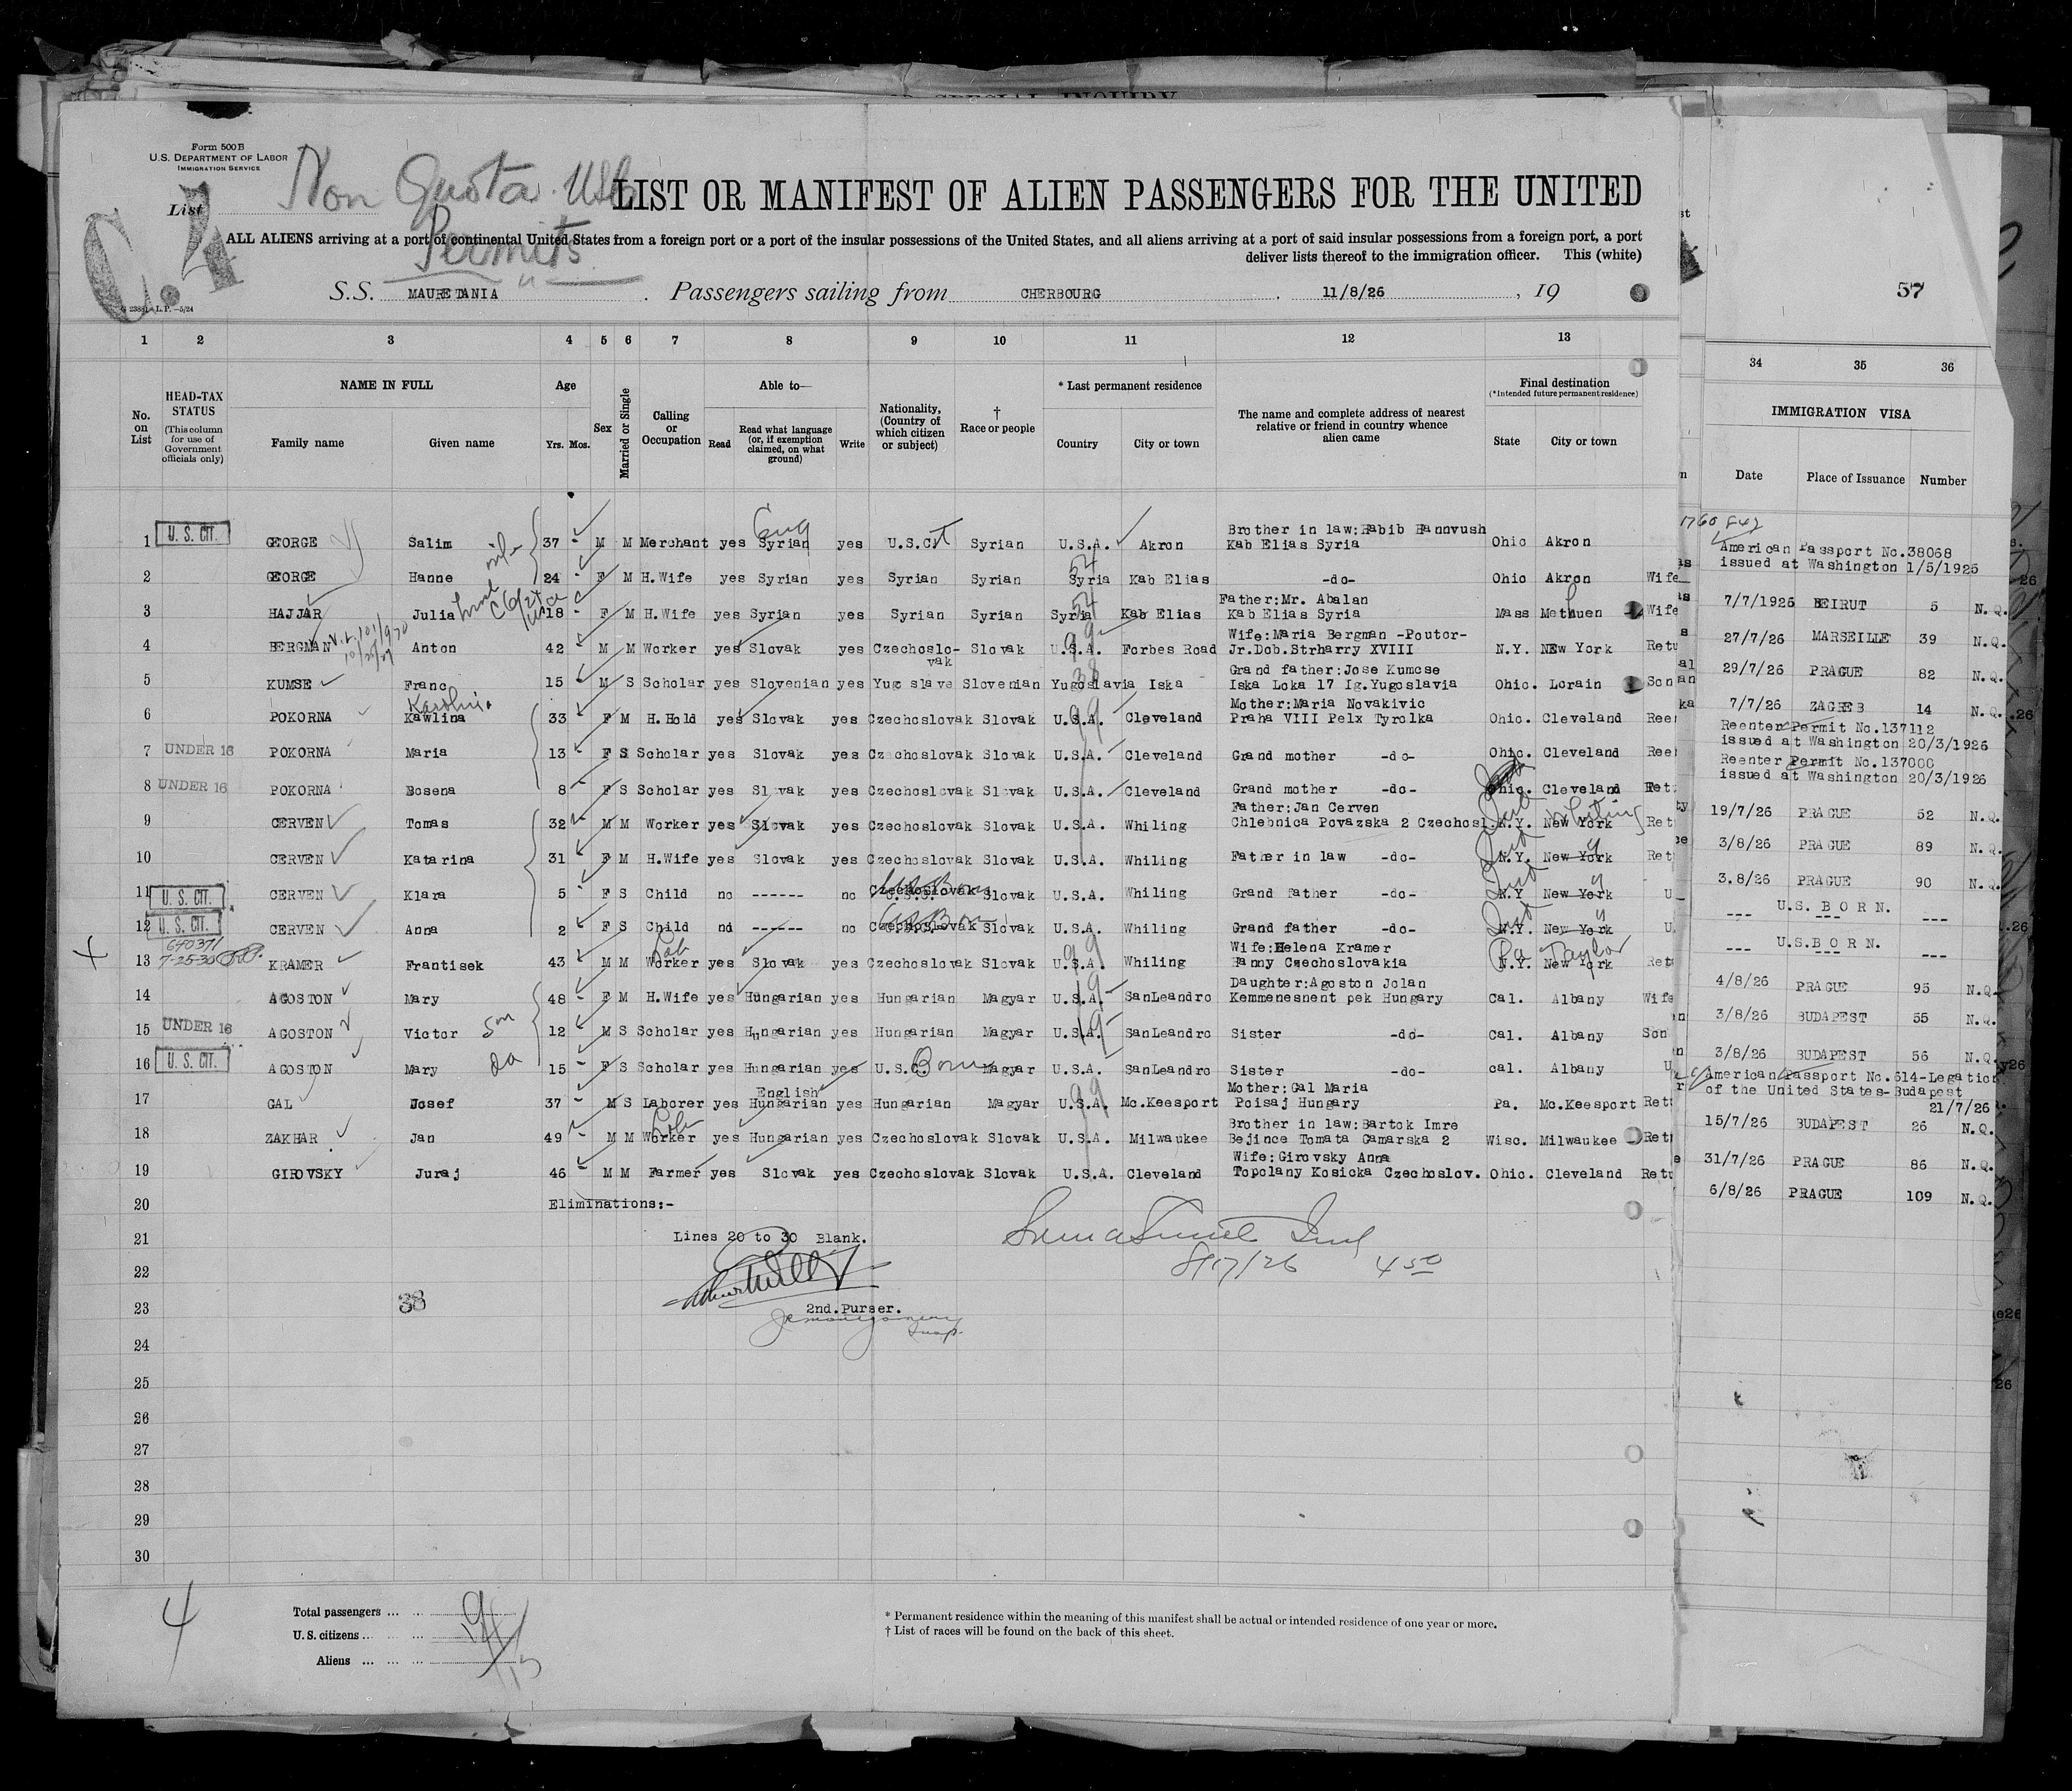 SPECIAL INQUIRY
Form 500 B
U.S. DEPARTMENT OF LABOR
IMMIGRATION SERVICE
Non Quota
Permits
C.4
List
LIST OR MANIFEST OF ALIEN PASSENGERS FOR THE UNITED
ALL ALIENS arriving at a port of continental United States from a foreign port or a port of the insular possessions of the United States, and all aliens arriving at a port of said insular possessions from a foreign port, a port
deliver lists thereof to the immigration officer. This (white)
S.S. MAURETANIA. Passengers sailing from CHERBOURG, 11/8/26, 19
57
1 2 3 4 5 6 7 8 9 10 11 12 13
34 35 36
No. on List
HEAD-TAX STATUS
(This column for use of Government officials only)
NAME IN FULL
Family name Given name
Age
Yrs. Mos.
Sex
Married or Single
Calling or Occupation
Able to—
Read
Read what language (or, if exemption claimed, on what ground)
Write
Nationality, (Country of which citizen or subject)
† Race or people
* Last permanent residence
Country City or town
The name and complete address of nearest relative or friend in country whence alien came
Final destination
(*Intended future permanent residence)
State City or town
IMMIGRATION VISA
Date Place of Issuance Number
Eng
Brother in law:Habib Hannvush
1 U. S. CIT. GEORGE Salim 37 - M M Merchant yes Syrian yes U.S.C. Syrian U.S.A. Akron Kab Elias Syria Ohio Akron
wife
54
2 GEORGE Hanne 24 - F M H.Wife yes Syrian yes Syrian Syrian Syria Kab Elias -do- Ohio Akron Wife
54
Father:Mr. Abalan
3 HAJJAR Julia 18 - F M H.Wife yes Syrian yes Syrian Syrian Syria Kab Elias Kab Elias Syria Mass Methuen Wife
99
Wife:Maria Bergman -Poutor-
4 BERGMAN Anton 42 M M Worker yes Slovak yes Czechoslo-vak Slovak U.S.A. Forbes Road Jr.Dob.Strharry XVIII N.Y. NEw York Retu
38
Grand father:Jose Kumcse
5 KUMSE Franc 15 - M S Scholar yes Slovenian yes Yugo slave Slovenian Yugoslavia Iska Iska Loka 17 Ig.Yugoslavia Ohio. Lorain Son
99
Mother:Maria Novakivic
6 POKORNA Kawlina 33 - F M H.Hold yes Slovak yes Czechoslovak Slovak U.S.A. Cleveland Praha VIII Pelx Tyrolka Ohio. Cleveland Reen
7 UNDER 16 POKORNA Maria 13 - F S Scholar yes Slovak yes Czechoslovak Slovak U.S.A. Cleveland Grand mother -do- Ohio. Cleveland Reen
8 UNDER 16 POKORNA Bosena 8 - F S Scholar yes Slovak yes Czechoslovak Slovak U.S.A. Cleveland Grand mother -do- Ohio. Cleveland Ret
Father:Jan Cerven
9 CERVEN Tomas 32 - M M Worker yes Slovak yes Czechoslovak Slovak U.S.A. Whiling Chlebnica Povazska 2 Czechosl. N.Y. New York Ind Whiting Ret
10 CERVEN Katarina 31 - F M H.Wife yes Slovak yes Czechoslovak Slovak U.S.A. Whiling Father in law -do- N.Y. New York Ind Ret
11 U. S. CIT. CERVEN Klara 5 - F S Child no ------ no Czechoslovak Slovak U.S.A. Whiling Grand father -do- N.Y New York Ind U
12 U. S. CIT. CERVEN Anna 2 - F S Child no ------ no Czechoslovak Slovak U.S.A. Whiling Grand father -do- N.Y. New York Ind U.
640371
Lab
99
Wife:Helena Kramer
13 7-25-35 KRAMER Frantisek 43 - M M Worker yes Slovak yes Czechoslovak Slovak U.S.A. Whiling Banny Czechoslovakia N.Y. New York Pa Taylor Ret
Daughter:Agoston Jolan
14 AGOSTON Mary 48 - F M H.Wife yes Hungarian yes Hungarian Magyar U.S.A. SanLeandro Kemmenesnent pek Hungary Cal. Albany Wife
15 UNDER 16 AGOSTON Victor Son 12 - M S Scholar yes Hungarian yes Hungarian Magyar U.S.A. SanLeandro Sister -do- Cal. Albany Son
16 U. S. CIT. AGOSTON Mary da 15 - F S Scholar yes Hungarian yes U.S.C. Born Magyar U.S.A. SanLeandro Sister -do- cal. Albany U
English
99
Mother:Gal Maria
17 GAL Josef 37 - M S Laborer yes Hungarian yes Hungarian Magyar U.S.A. Mc.Keesport Poisaj Hungary Pa. Mc.Keesport Ret
Lab
Brother in law:Bartok Imre
18 ZAKHAR Jan 49 - M M Worker yes Hungarian yes Czechoslovak Slovak U.S.A. Milwaukee Bejince Tomata Camarska 2 Wisc. Milwaukee Ret
Wife:Girovsky Anna
19 GIROVSKY Juraj 46 - M M Farmer yes Slovak yes Czechoslovak Slovak U.S.A. Cleveland Topolany Kosicka Czechoslov. Ohio. Cleveland Ret
20 Eliminations:-
21 Lines 20 to 30 Blank.
22 8/17/26 450
23 38 2nd.Purser.
24
25
26
27
28
29
30
American Passport No.38068
issued at Washington 1/5/1925
7/7/1926 BEIRUT 5 N.Q.
27/7/26 MARSEILLE 39 N.Q.
29/7/26 PRAGUE 82 N.Q.
7/7/26 ZAGREB 14 N.Q.
Reenter Permit No.137112
issued at Washington 20/3/1926
Reenter Permit No.137000
issued at Washington 20/3/1926
19/7/26 PRAGUE 52 N.Q.
3/8/26 PRAGUE 89 N.Q.
3.8/26 PRAGUE 90 N.Q.
--- U.S. B O R N. --- ---
--- U.S.B O R N. --- ---
4/8/26 PRAGUE 95 N.Q.
3/8/26 BUDAPEST 55 N.Q.
3/8/26 BUDAPEST 56 N.Q.
American Passport No.514-Legation
of the United States-Budapest
21/7/26
15/7/26 BUDAPEST 26 N.Q.
31/7/26 PRAGUE 86 N.Q.
6/8/26 PRAGUE 109 N.Q.
4
Total passengers ... ... 19
U. S. citizens ... ... 4
Aliens ... ... ... 15
* Permanent residence within the meaning of this manifest shall be actual or intended residence of one year or more.
† List of races will be found on the back of this sheet.